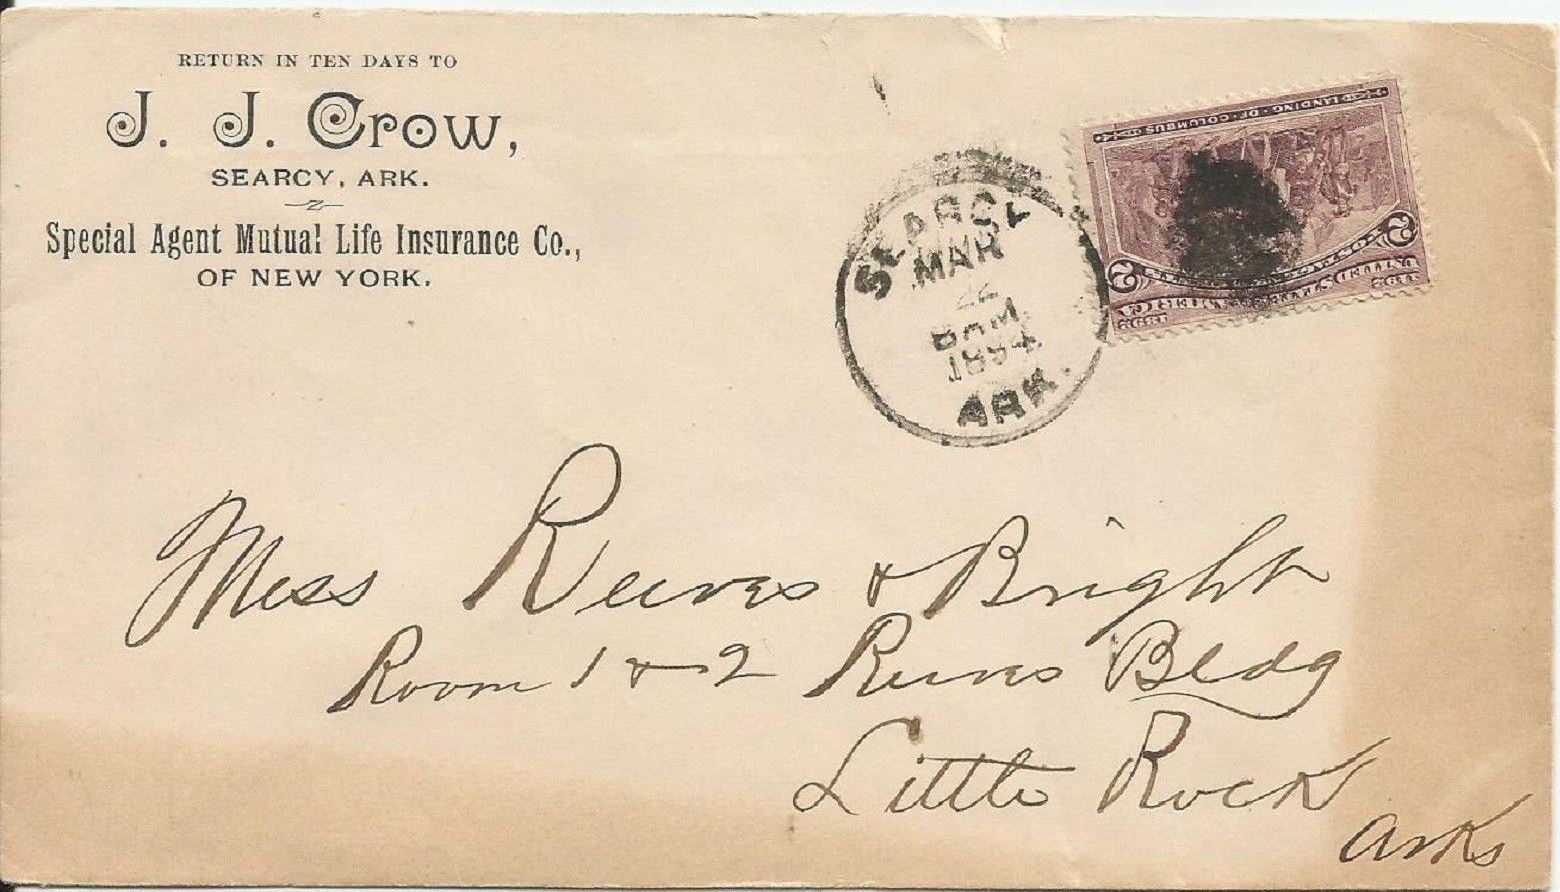 RETURN IN TEN DAYS TO
J. J. Crow,
SEARCY, ARK.
Special Agent Mutual Life Insurance Co.,
OF NEW YORK.
SEARCY
MAR
22
8 PM
1894
ARK.
LANDING OF COLUMBUS
2 2
UNITED STATES OF AMERICA
1492 1892
Mess Reeves & Bright
Room 1 & 2 Bldg
Little Rock
Arks